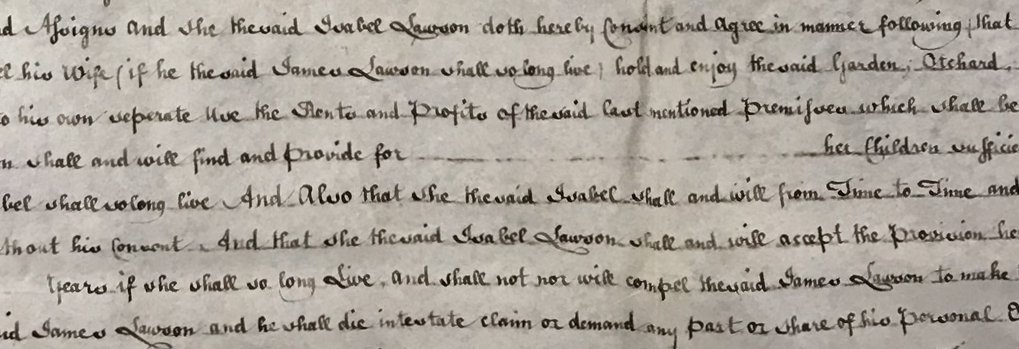 d Assigns and She the said Isabel Lawson doth hereby Consent and Agree in manner following, that
his Wife (if he the said James Lawson shall so long live) hold and enjoy the said Garden, Orchard,
o his own seperate Use the Rents and Profits of the said last mentioned Premisses which shall be
n shall and will find and provide for her Children suffici
bel shall so long live And Also that she the said Isabel shall and will from Time to Time and
thout his Consent. And that she the said Isabel Lawson shall and will accept the Provision he
Years if she shall so long Live, and shall not nor will compel the said James Lawson to make
id James Lawson and he shall die intestate claim or demand any part or share of his personal E